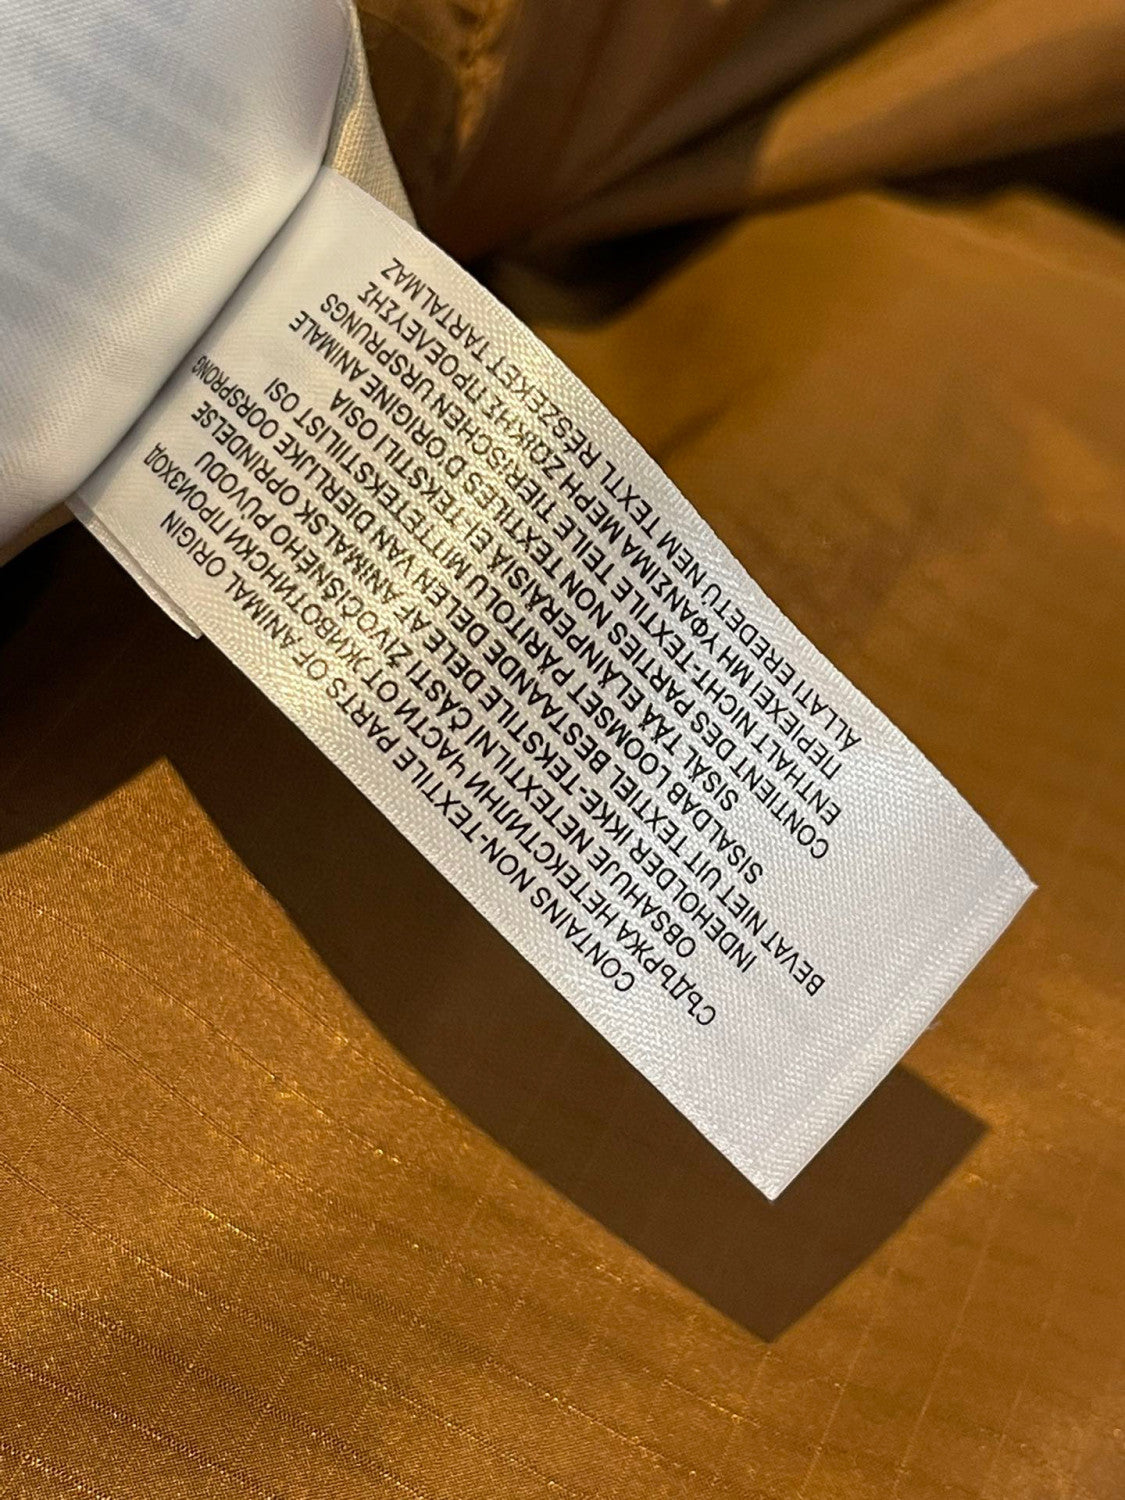 CONTAINS NON-TEXTILE PARTS OF ANIMAL ORIGIN
СЪДЪРЖА НЕТЕКСТИЛНИ ЧАСТИ ОТ ЖИВОТИНСКИ ПРОИЗХОД
OBSAHUJE NETEXTILNÍ ČÁSTI ŽIVOČIŠNÉHO PŮVODU
INDEHOLDER IKKE-TEKSTILE DELE AF ANIMALSK OPRINDELSE
BEVAT NIET UIT TEXTIEL BESTAANDE DELEN VAN DIERLIJKE OORSPRONG
SISALDAB LOOMSET PÄRITOLU MITTETEKSTIILIST OSI
SISÄLTÄÄ ELÄINPERÄISIÄ EI-TEKSTIILI OSIA
CONTIENT DES PARTIES NON TEXTILES D'ORIGINE ANIMALE
ENTHÄLT NICHT-TEXTILE TEILE TIERISCHEN URSPRUNGS
ΠΕΡΙΕΧΕΙ ΜΗ ΥΦΑΝΣΙΜΑ ΜΕΡΗ ΖΩΙΚΗΣ ΠΡΟΕΛΕΥΣΗΣ
ÁLLATI EREDETŰ NEM TEXTIL RÉSZEKET TARTALMAZ